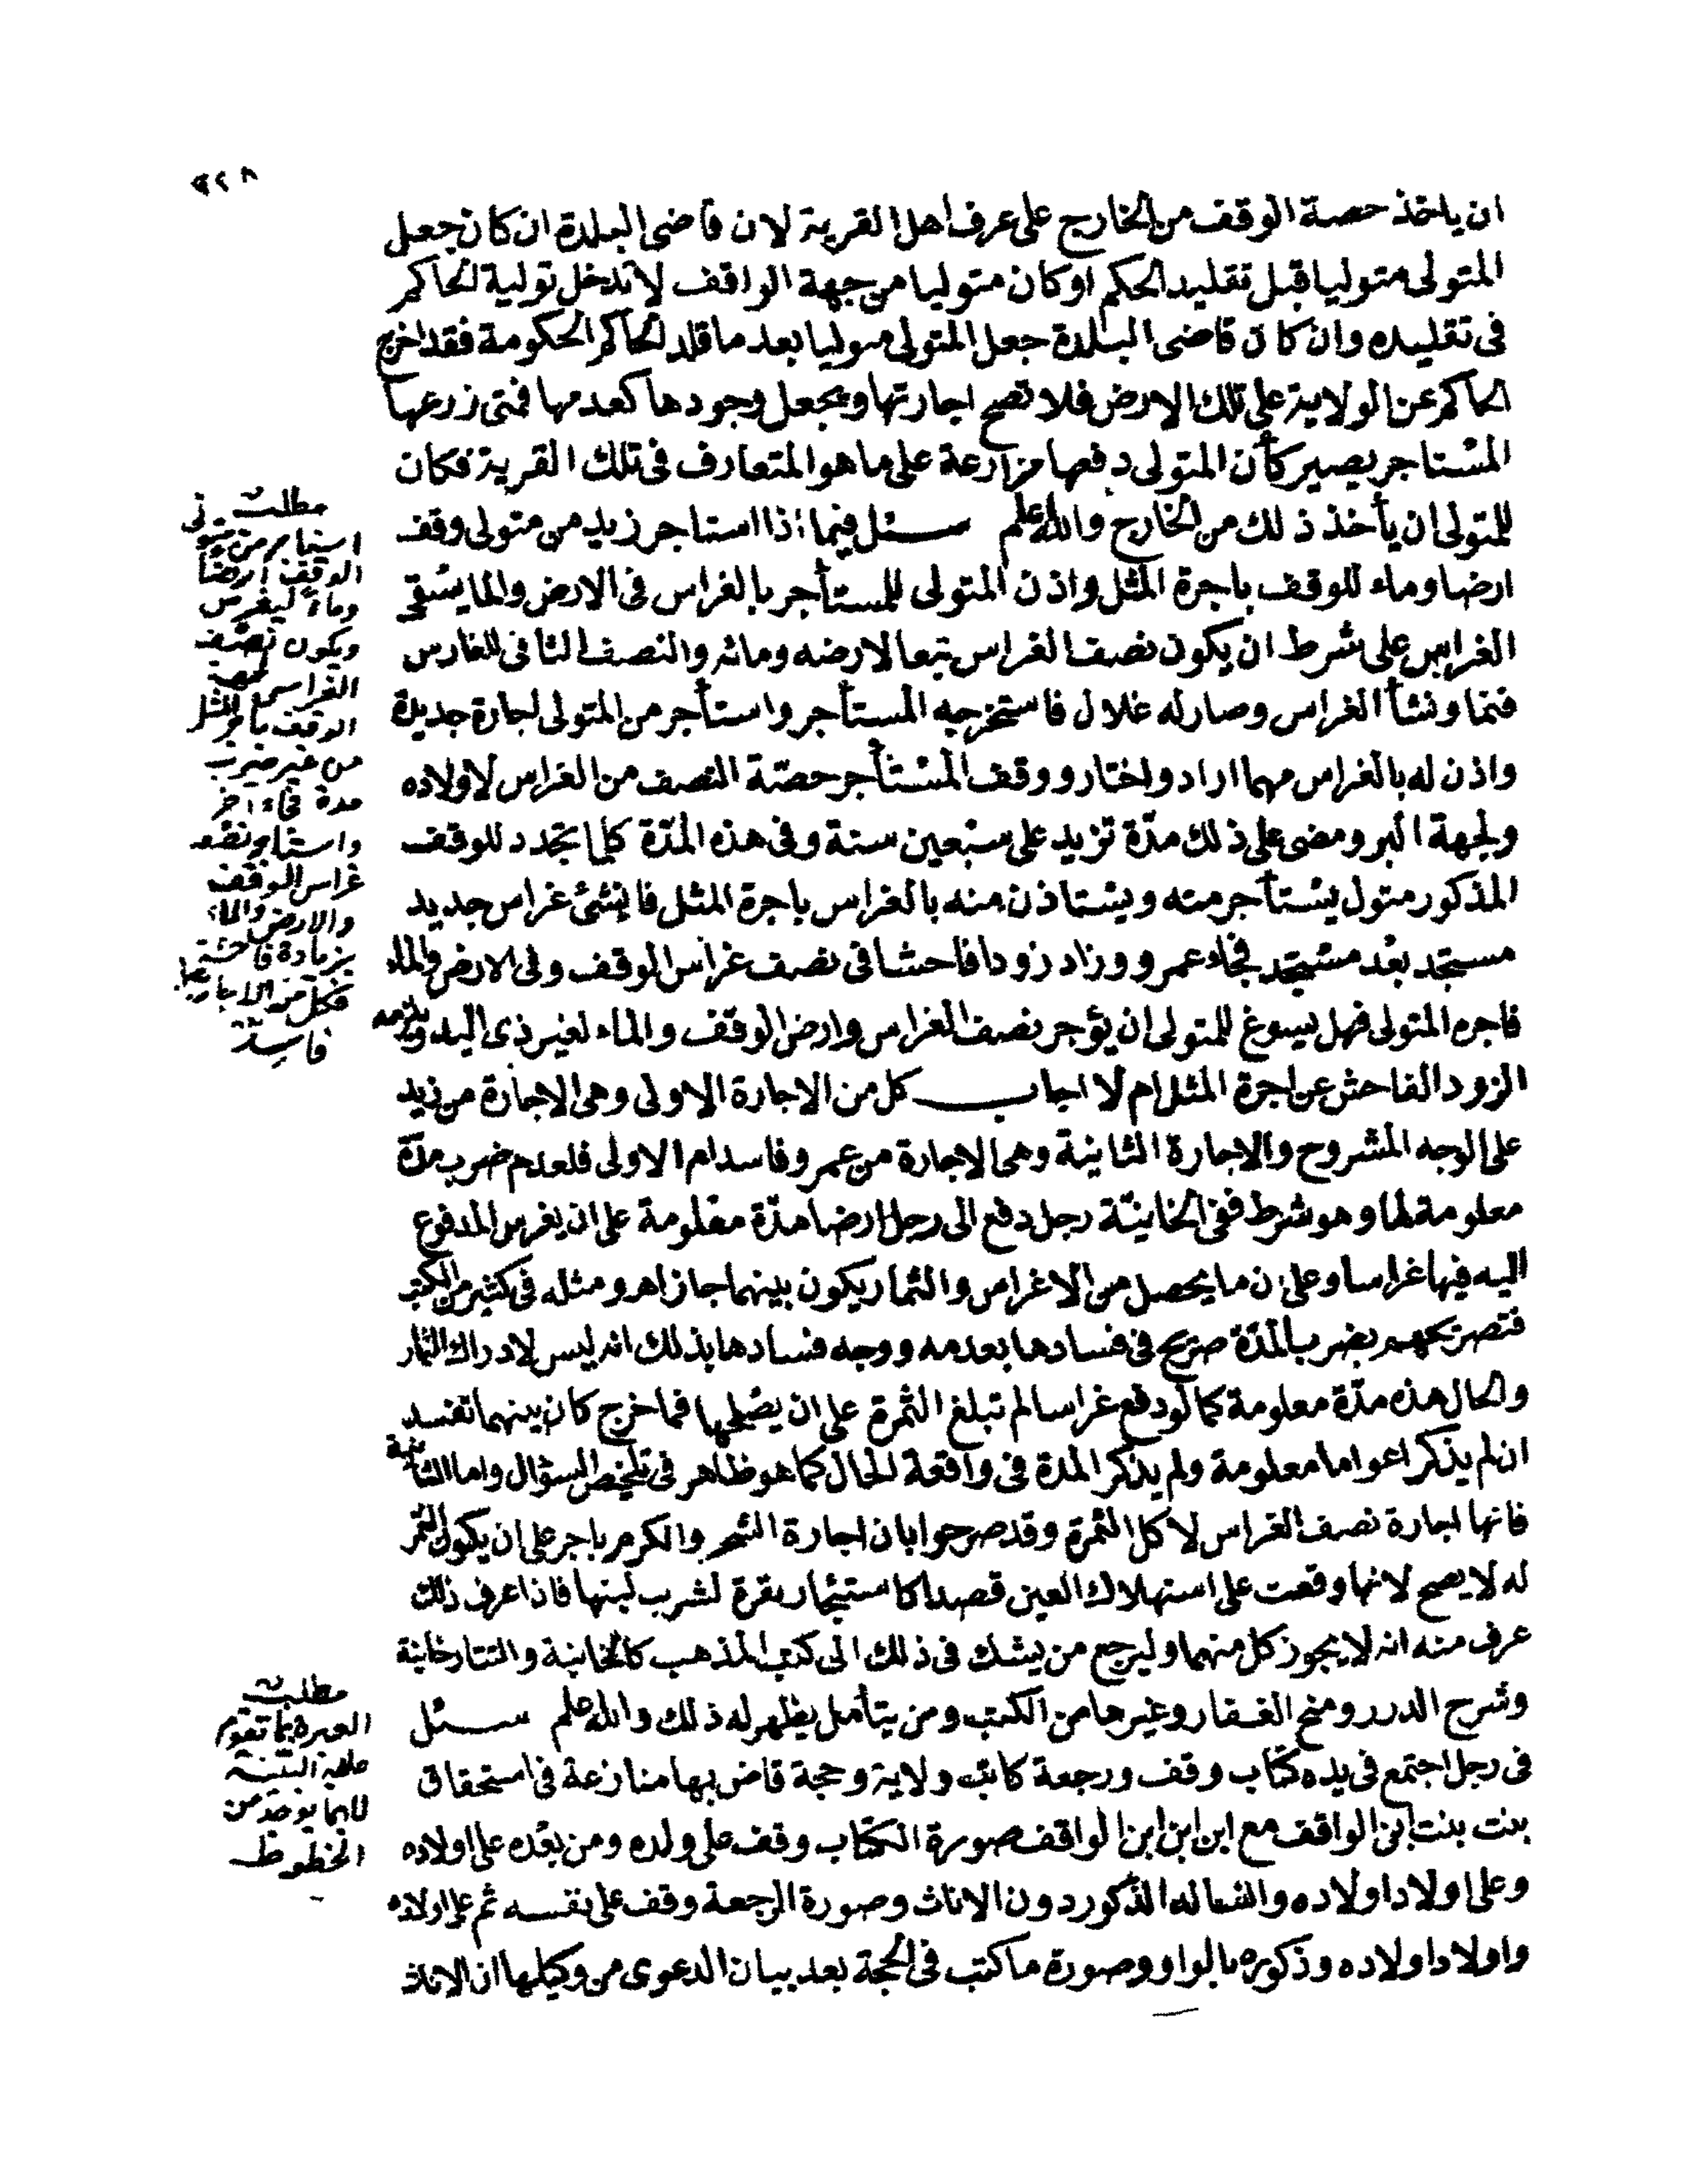 ان ياخذ حصة الوقف من الخارج على عرف اهل القرية لان قاضى البلدة ان كان جعل
المتولى متوليا قبل تقليد الحكم او كان متوليا من جهة الواقف لا تدخل تولية الحاكم
فى تقليده وان كان قاضى البلدة جعل المتولى متوليا بعد ما قلد الحاكم الحكومة فقد اخرج
الحاكم عن الولاية على تلك الارض فلا تصح اجارتها ويجعل وجودها كعدمها فمتى زرعها
المستاجر يصير كأن المتولى دفعها مزارعة على ما هو المتعارف فى تلك القرية فكان
للمتولى ان يأخذ ذلك من الخارج والله اعلم سئل فيما اذا استاجر زيد من متولى وقف
ارضا وماء للوقف باجرة المثل واذن المتولى للمستأجر بالغراس فى الارض والما يسقى
الغراس على شرط ان يكون نصف الغراس تبعا لارضه ومائه والنصف الثانى للغارس
فنما ونشأ الغراس وصار له غلال فاستخرجه المستأجر واستأجر من المتولى اجارة جديدة
واذن له بالغراس مهما اراد واختار ووقف المستأجر حصة النصف من الغراس لاولاده
ولجهة البر ومضى على ذلك مدة تزيد على سبعين سنة وفى هذه المدة كلما يتجدد للوقف
المذكور متول يستأجر منه ويستاذن منه بالغراس باجرة المثل فانشئ غراس جديد
مستجد بعد مستجد فجاء عمرو وزاد زودا فاحشا فى نصف غراس الوقف وفى الارض والماء
فاجره المتولى فهل يسوغ للمتولى ان يؤجر نصف الغراس وارض الوقف والماء لغير ذى اليد ويلزمه
الزود الفاحش عن اجرة المثل ام لا اجاب كل من الاجارة الاولى وهى الاجارة من زيد
على الوجه المشروح والاجارة الثانية وهى الاجارة من عمرو فاسد اما الاولى فلعدم ضرب مدة
معلومة لها وهو شرط ففى الخانية رجل دفع الى رجل ارضا مدة معلومة على ان يغرس المدفوع
اليه فيها غراسا وعلى ان ما يحصل من الاغراس والثمار يكون بينهما جاز اه ومثله فى كثير من الكتب
فتصريحهم بضرب المدة صريح فى فسادها بعدمه ووجه فسادها بذلك انه ليس لادراك الثمار
والحال هذه مدة معلومة كما لو دفع غراسا لم تبلغ الثمرة على ان يصلحها فما خرج كان بينهما تفسد
ان لم يذكر اعواما معلومة ولم يذكر المدة فى واقعة الحال كما هو ظاهر فى تلخيص السؤال واما الثانية
فانها اجارة نصف الغراس لاكل الثمرة وقد صرحوا بان اجارة الشجر والكرم باجر على ان يكون الثمر
له لا يصح لانها وقعت على استهلاك العين قصدا كاستئجار بقرة لشرب لبنها فاذا عرف ذلك
عرف منه انه لا يجوز كل منهما وليرجع من يشك فى ذلك الى كتب المذهب كالخانية والتتارخانية
وشرح الدرر ومنح الغفار وغيرها من الكتب ومن يتأمل يظهر له ذلك والله اعلم سئل
فى رجل اجتمع فى يده كتاب وقف ورجعة كاتب ولاية وحجة قاض بها منازعة فى استحقاق
بنت بنت ابن الواقف مع ابن ابن ابن الواقف صورة الكتاب وقف على ولده ومن بعده على اولاده
وعلى اولاد اولاده وانساله الذكور دون الاناث وصورة الرجعة وقف على نفسه ثم على اولاده
واولاد اولاده وذكوره بالواو وصورة ما كتب فى الحجة بعد بيان الدعوى من وكيلها ان الاناث
مطلب
استاجر من متولى
الوقف ارضا
وماء ليغرس
ويكون نصف
الغراس لجهة
الوقف باجر المثل
من غير ضرب
مدة فجاء اخر
واستاجر نصف
غراس الوقف
والارض والماء
بزيادة فاحشة
فكل من الاجارتين
فاسدة
مطلب
العبرة بما تقوم
عليه البينة
لا بما يوجد من
الخطوط